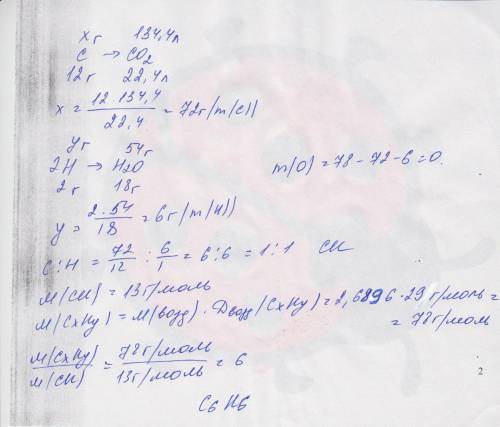 x г 134,4 л
C → CO2
12 г 22,4 л
x = 12·134,4 / 22,4 = 72 г (m(C))
y г 54 г
2H → H2O
2 г 18 г
m(O) = 78 - 72 - 6 = 0.
y = 2·54 / 18 = 6 г (m(H))
C:H = 72/12 : 6/1 = 6:6 = 1:1 CH
M(CH) = 13 г/моль
M(CxHy) = M(возд)·Dвозд(CxHy) = 2,6896·29 г/моль =
= 78 г/моль
M(CxHy) / M(CH) = 78 г/моль / 13 г/моль = 6
C6H6
2